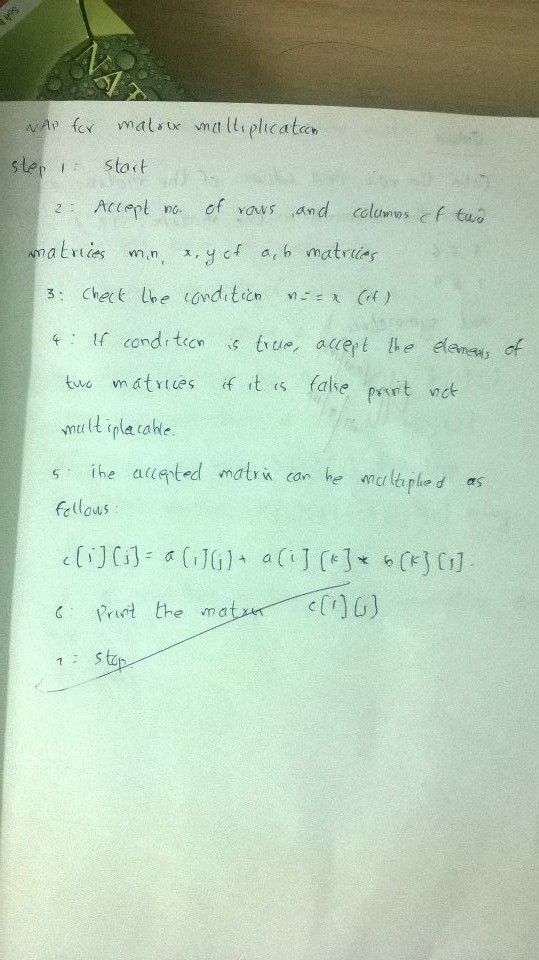 NAT
WAP for matrix multiplication
step 1: start
2: Accept no. of rows and columns of two
matrices m,n, x,y of a,b matrices
3: Check the condition n==x (if)
4: If condition is true, accept the elements of
two matrices if it is false print not
multiplacable.
5: the accepted matrix can be multiplied as
follows:
c[i][j]= a[i][j]+ a[i][k]* b[k][j].
6: Print the matrix c[i][j]
7: stop.